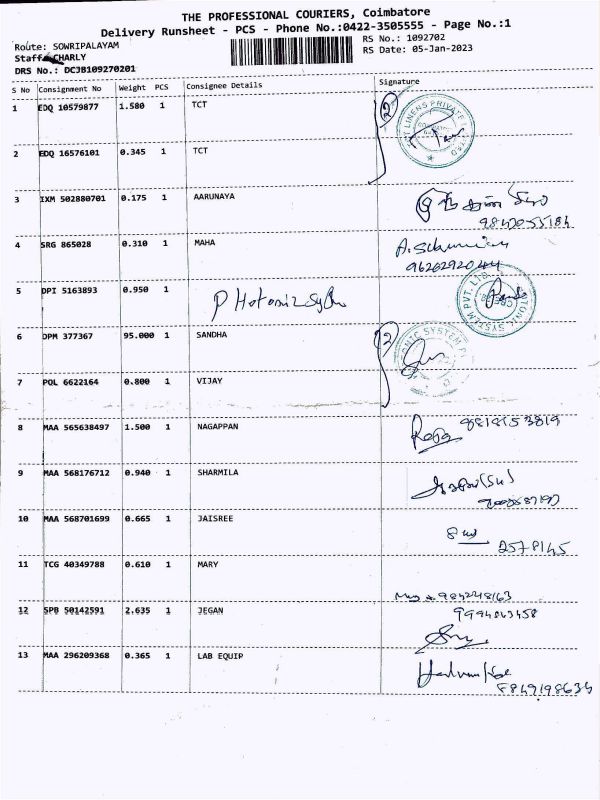 THE PROFESSIONAL COURIERS, Coimbatore
Delivery Runsheet - PCS - Phone No.:0422-3505555 - Page No.:1
Route: SOWRIPALAYAM
RS No.: 1092702
Staff: CHARLY
RS Date: 05-Jan-2023
DRS No.: DCJB109270201
S No Consignment No Weight PCS Consignee Details Signature
1 EDQ 10579877 1.580 1 TCT
2 EDQ 16576101 0.345 1 TCT
3 IXM 502880701 0.175 1 AARUNAYA
4 SRG 865028 0.310 1 MAHA
9626292044
5 DPI 5163893 0.950 1
6 DPM 377367 95.000 1 SANDHA
7 POL 6622164 0.800 1 VIJAY
8 MAA 565638497 1.500 1 NAGAPPAN
9 MAA 568176712 0.940 1 SHARMILA
10 MAA 568701699 0.665 1 JAISREE
2578145
11 TCG 40349788 0.610 1 MARY
12 SPB 50142591 2.635 1 JEGAN
13 MAA 296209368 0.365 1 LAB EQUIP